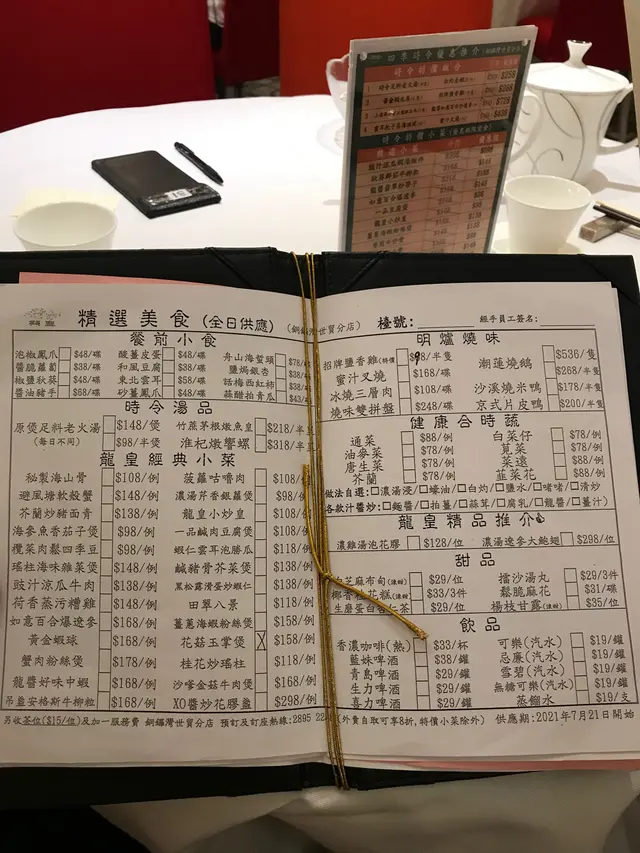 四季時令優惠推介
精選美食 (全日供應) (銅鑼灣世貿分店) 檯號: 經手員工簽名:
餐前小食
泡椒鳳爪 $48/碟 酸薑皮蛋 $48/碟 舟山海蜇頭 $78/
醬脆蘿蔔 $38/碟 和風豆腐 $38/碟 鹽焗銀杏 $38/
椒鹽秋葵 $48/碟 東北雲耳 $58/碟 話梅西紅柿 $38/
醬油豬手 $68/碟 砂薑鳳爪 $48/碟 蒜醋拍青瓜 $43/
時令湯品
原煲足料老火湯 $148/煲 竹蓀茅根燉魚皇 $218/半
(每日不同) $98/半煲 淮杞燉響螺 $318/半
龍皇經典小菜
秘製海山骨 $108/例 菠蘿咕嚕肉 $108/
避風塘軟殼蟹 $148/例 濃湯芹香銀蘿煲 $98/
芥蘭炒豬面青 $138/例 龍皇小炒皇 $108/
海參魚香茄子煲 $98/例 一品鹹肉豆腐煲 $108/
欖菜肉鬆四季豆 $98/例 蝦仁雲耳泡勝瓜 $118/
瑤柱海味雜菜煲 $148/例 鹹豬骨芥菜煲 $108/
豉汁涼瓜牛肉 $108/例 黑松露滑蛋炒蝦仁 $138/
荷香蒸污糟雞 $148/例 田翠八景 $118/
如意百合爆遼參 $168/例 薑蔥海蝦粉絲煲 $158/
黃金蝦球 $168/例 花菇玉掌煲 $158/例
蟹肉粉絲煲 $178/例 桂花炒瑤柱 $118/例
龍醬好味中蝦 $168/例 沙嗲金菇牛肉煲 $168/例
吊龍安格斯牛柳粒 $168/例 XO醬炒花膠盞 $298/例
明爐燒味
招牌鹽香雞(特價) $98/半隻 潮蓮燒鵝 $536/隻
$268/半隻
蜜汁叉燒 $168/碟
冰燒三層肉 $108/碟 沙溪燎米鴨 $178/半隻
燒味雙拼盤 $248/碟 京式片皮鴨 $200/半隻
健康合時蔬
通菜 $88/例 白菜仔 $78/例
油麥菜 $78/例 莧菜 $78/例
唐生菜 $78/例 菜遠 $88/例
芥蘭 $78/例 韮菜花 $88/例
做法自選:□濃湯浸/□蠔油/□白灼/□鹽水/□啫啫/□清炒
各款汁醬炒:(□麵醬/□拍薑/□蒜茸/□腐乳/□龍醬/□薑汁)
龍皇精品推介
濃雞湯泡花膠 $128/位 濃湯遼參大鮑翅 $298/位
甜品
芝麻布甸(凍甜) $29/位 擂沙湯丸 $29/3件
椰香桂花糕(凍甜) $33/3件 鬆脆麻花 $31/碟
生磨蛋白杏仁茶 $39/位 楊枝甘露(凍甜) $35/位
飲品
香濃咖啡(熱) $33/杯 可樂(汽水) $19/罐
藍妹啤酒 $38/罐 忌廉(汽水) $19/罐
青島啤酒 $29/罐 雪碧(汽水) $19/罐
生力啤酒 $29/罐 無糖可樂(汽水) $19/罐
喜力啤酒 $29/罐 蒸餾水 $19/支
另收茶位($15/位)及加一服務費 銅鑼灣世貿分店 預訂及訂座熱線:2895 22 (外賣自取可享8折,特價小菜除外) 供應期:2021年7月21日開始